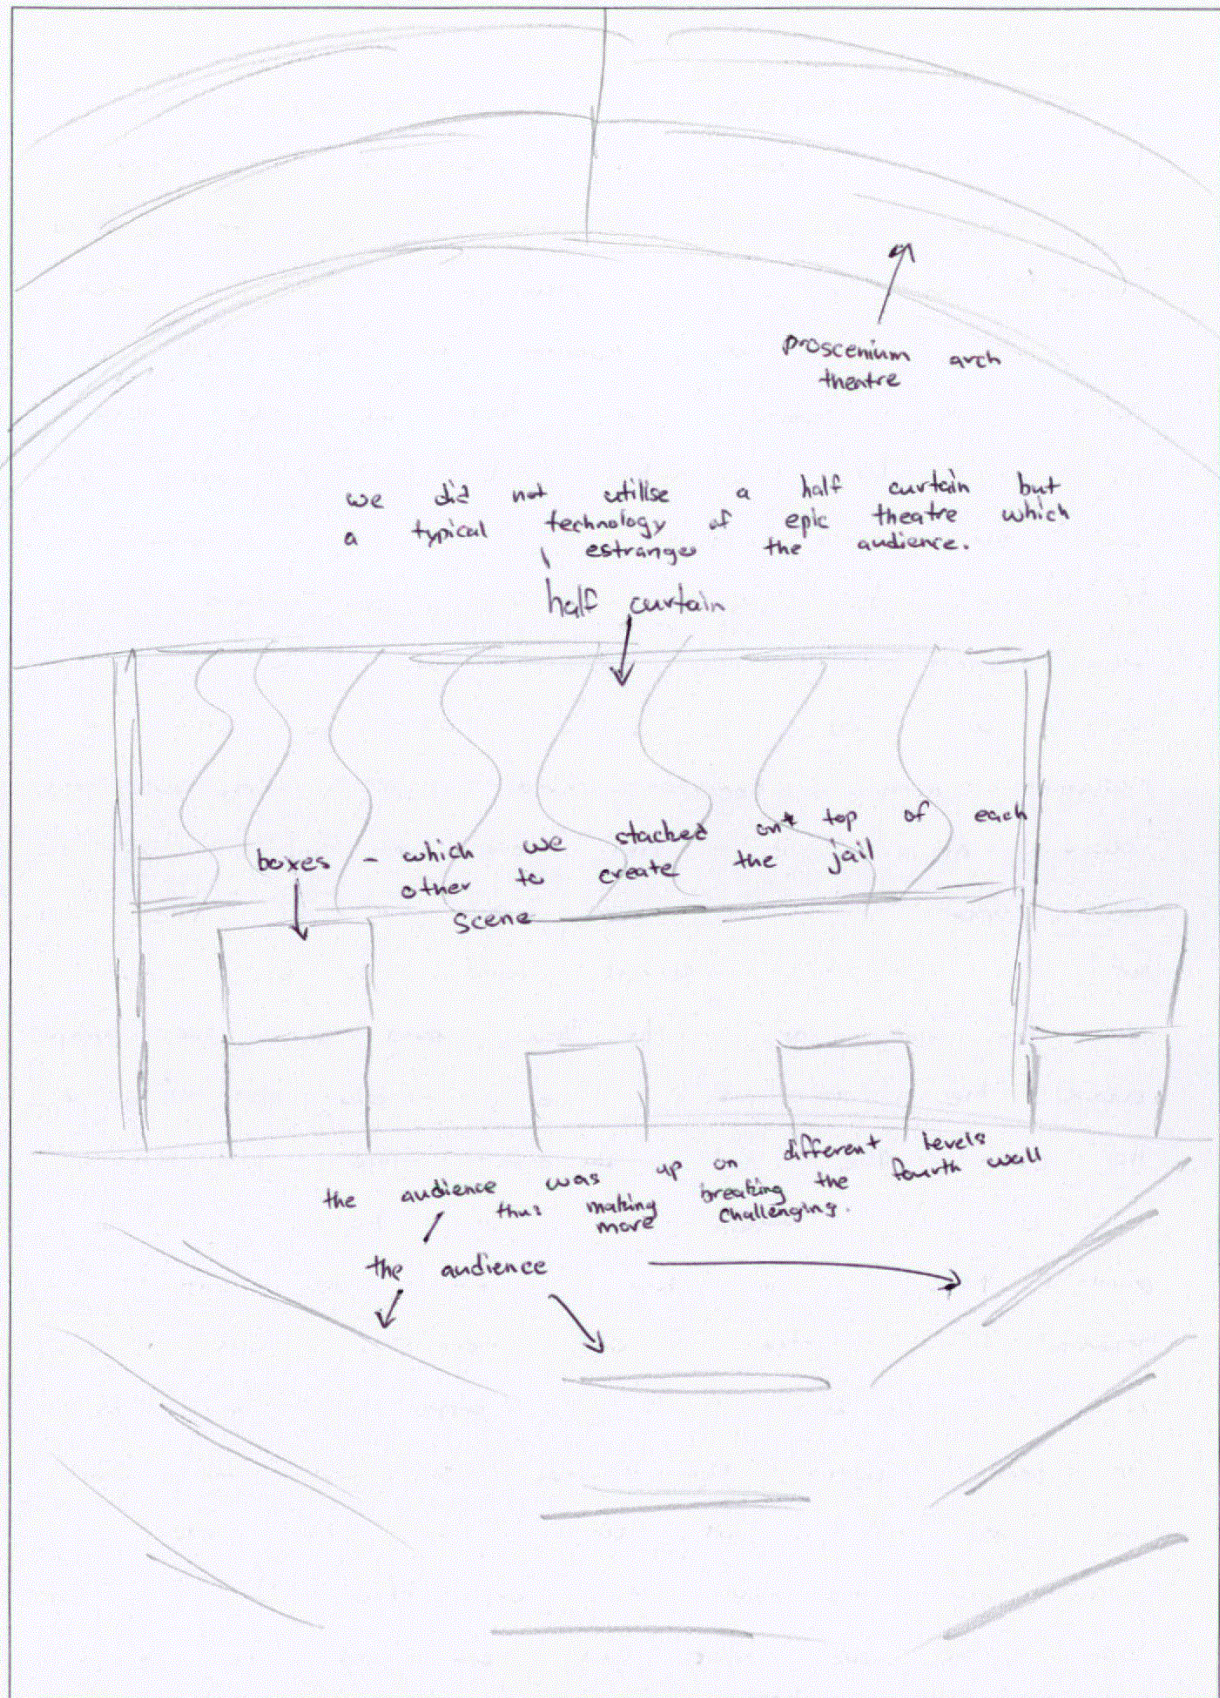 proscenium arch
theatre
we did not utilise a half curtain but
a typical technology of epic theatre which
estranges the audience.
half curtain
boxes - which we stacked on top of each
other to create the jail
scene
the audience was up on different levels
thus making breaking the fourth wall
more challenging.
the audience